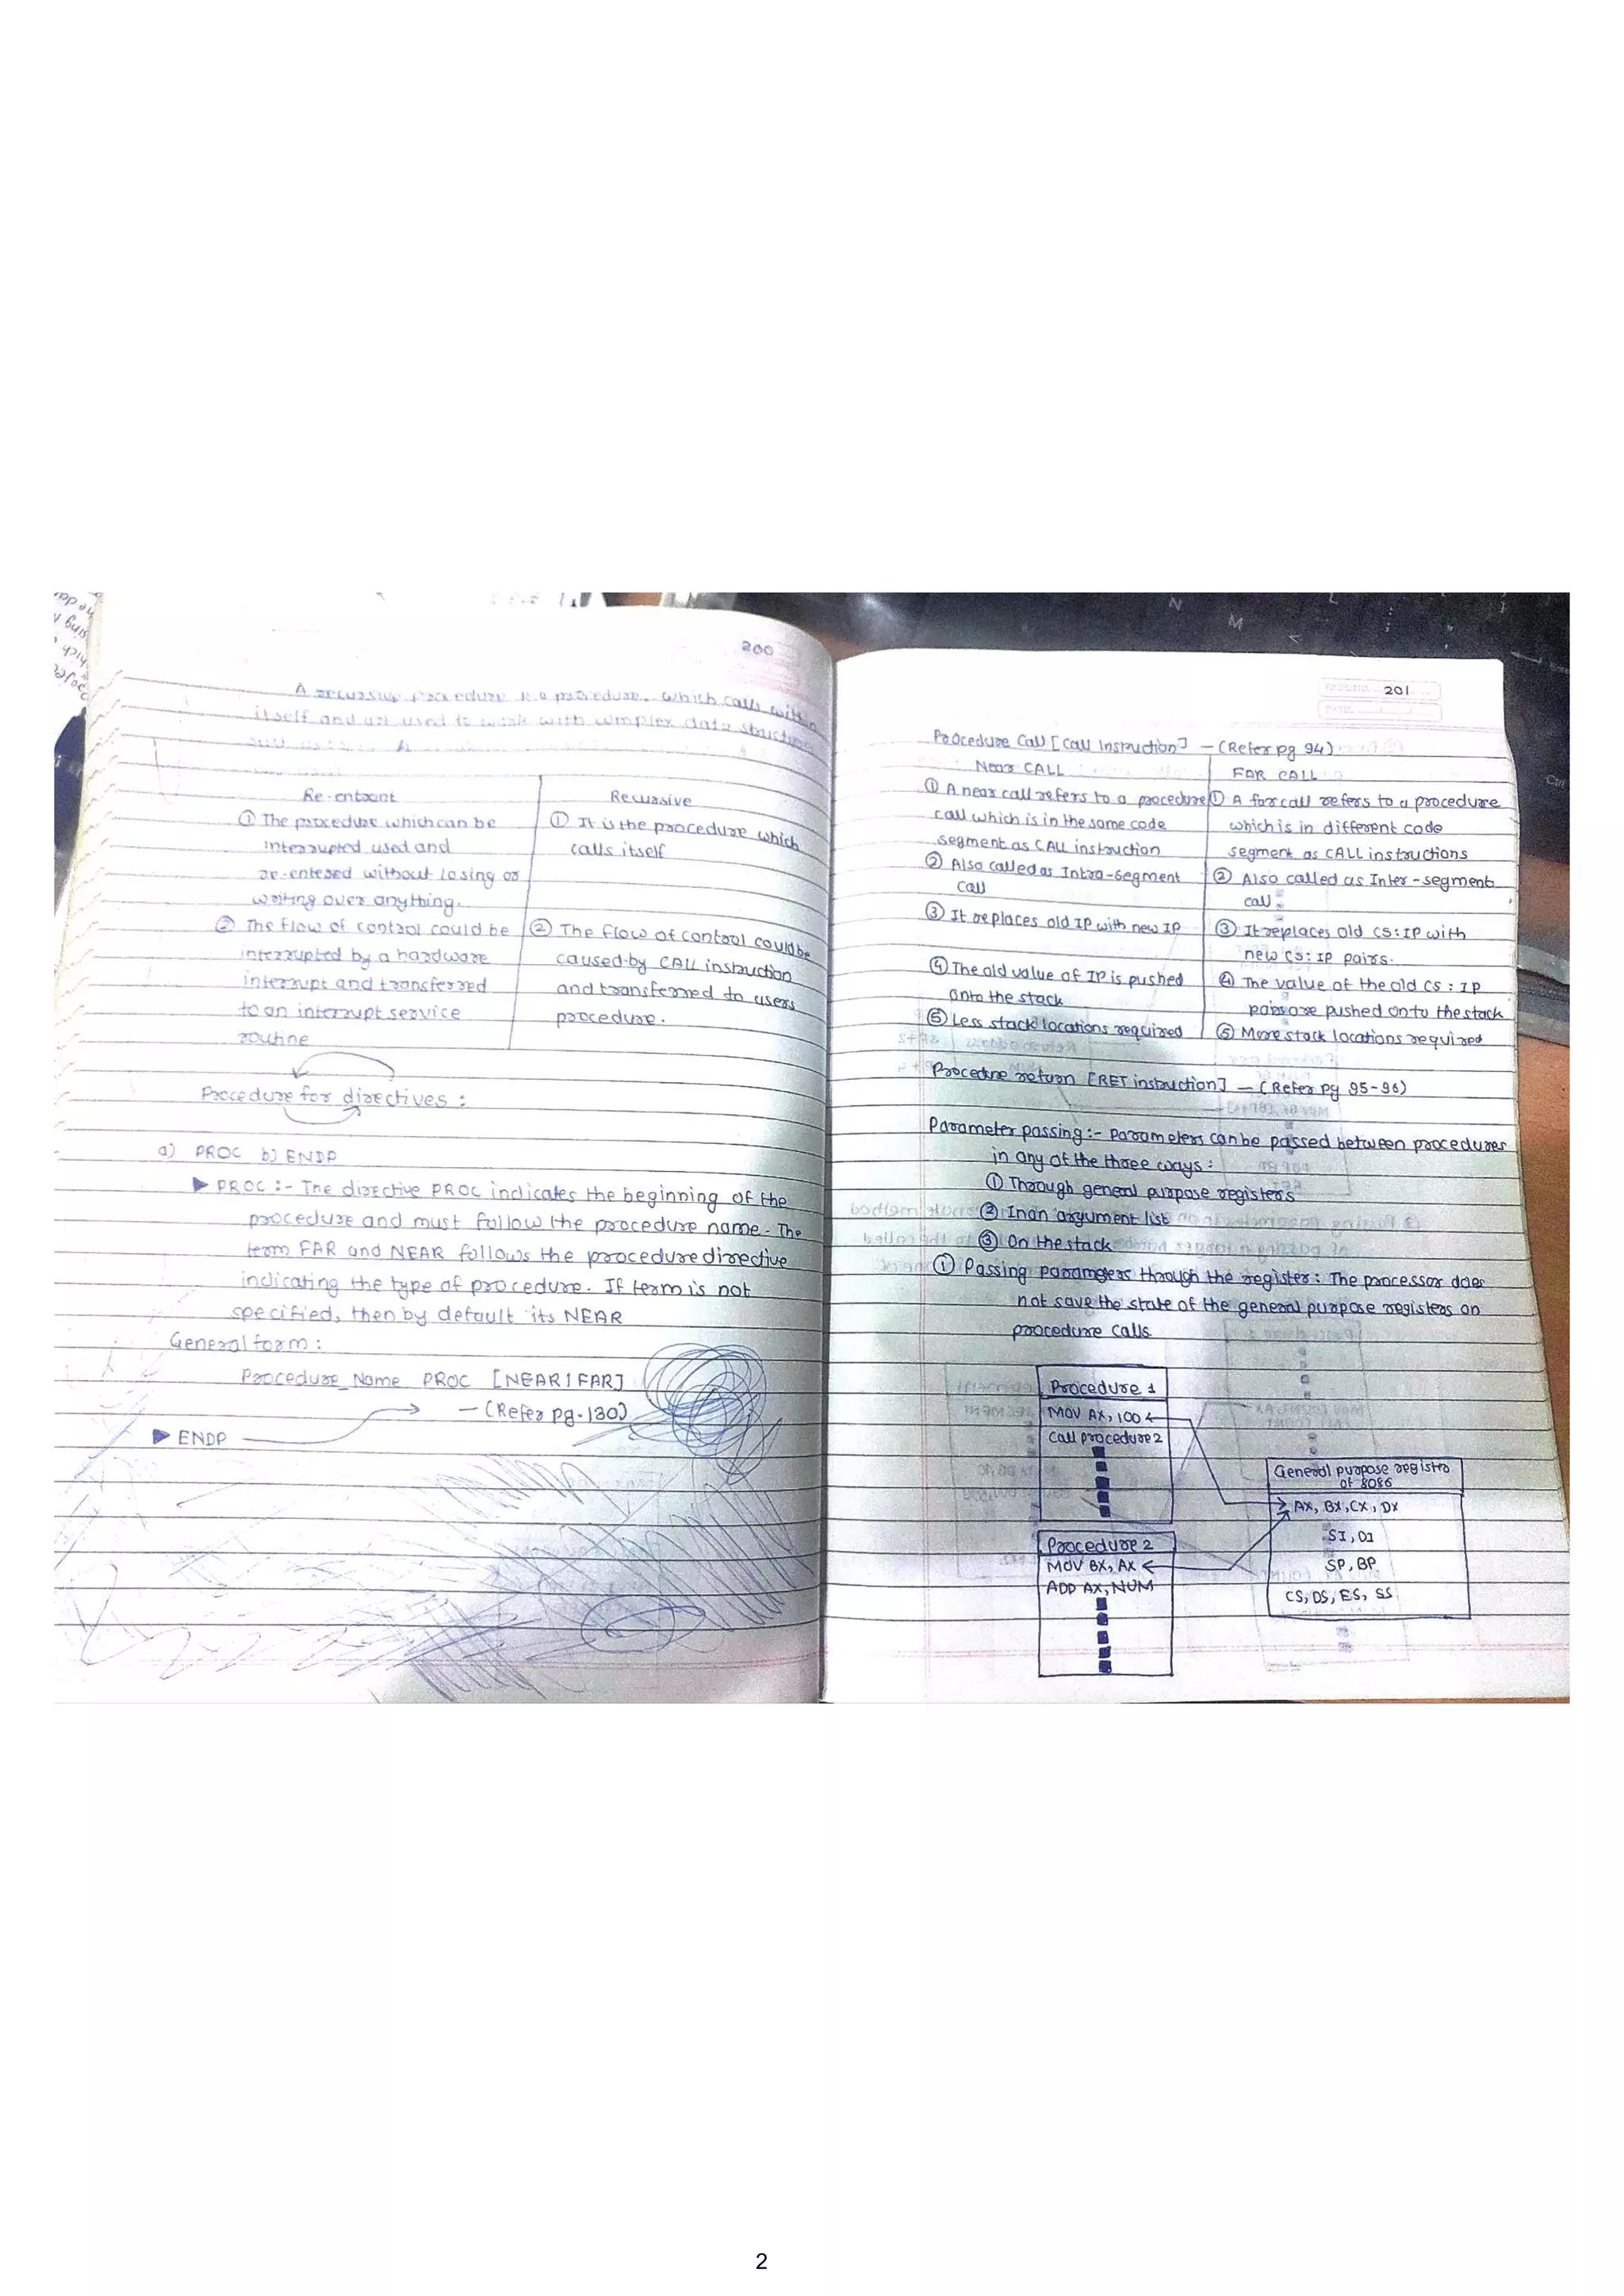 200
A recursive procedure is a procedure, which calls within
itself and are used to work with complex data structures
Re-entrant
① The procedure which can be
interrupted used and
re-entered without losing or
writing over anything.
② The flow of control could be
interrupted by a hardware
interrupt and transferred
to an interrupt service
routine
Recursive
① It is the procedure which
calls itself
② The flow of control could be
caused by CALL instruction
and transferred to users
procedure.
Procedure for directives :
a) PROC b) ENDP
▶ PROC :- The directive PROC indicates the beginning of the
procedure and must follow the procedure name. The
term FAR and NEAR follows the procedure directive
indicating the type of procedure. If term is not
specified, then by default its NEAR
General form :
Procedure_Name PROC [NEAR/FAR]
— (Refer pg-130)
▶ ENDP
201
Procedure Call [Call Instruction] — (Refer pg 94)
Near CALL
① A near call refers to a procedure
call which is in the same code
segment as CALL instruction
② Also called as Intra-segment
call
③ It replaces old IP with new IP
④ The old value of IP is pushed
onto the stack
⑤ Less stack locations required
FAR CALL
① A far call refers to a procedure
which is in different code
segment as CALL instructions
② Also called as Inter-segment
call
③ It replaces old CS:IP with
new CS:IP pairs.
④ The value of the old CS:IP
pairs are pushed onto the stack
⑤ More stack locations required
Procedure return [RET instruction] — (Refer pg 95-96)
Parameter passing :- Parameters can be passed between procedures
in any of the three ways :
① Through general purpose registers
② In an argument list
③ On the stack
① Passing parameters through the register : The processor does
not save the state of the general purpose registers on
procedure calls
Procedure 1
MOV AX, 100
Call procedure 2
General purpose registers
of 8086
AX, BX, CX, DX
SI, DI
SP, BP
CS, DS, ES, SS
Procedure 2
MOV BX, AX
ADD AX, NUM
2